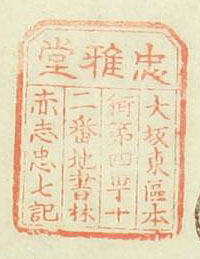 忠雅堂
大坂東區本
街第四丁十
二番地書林
赤志忠七記